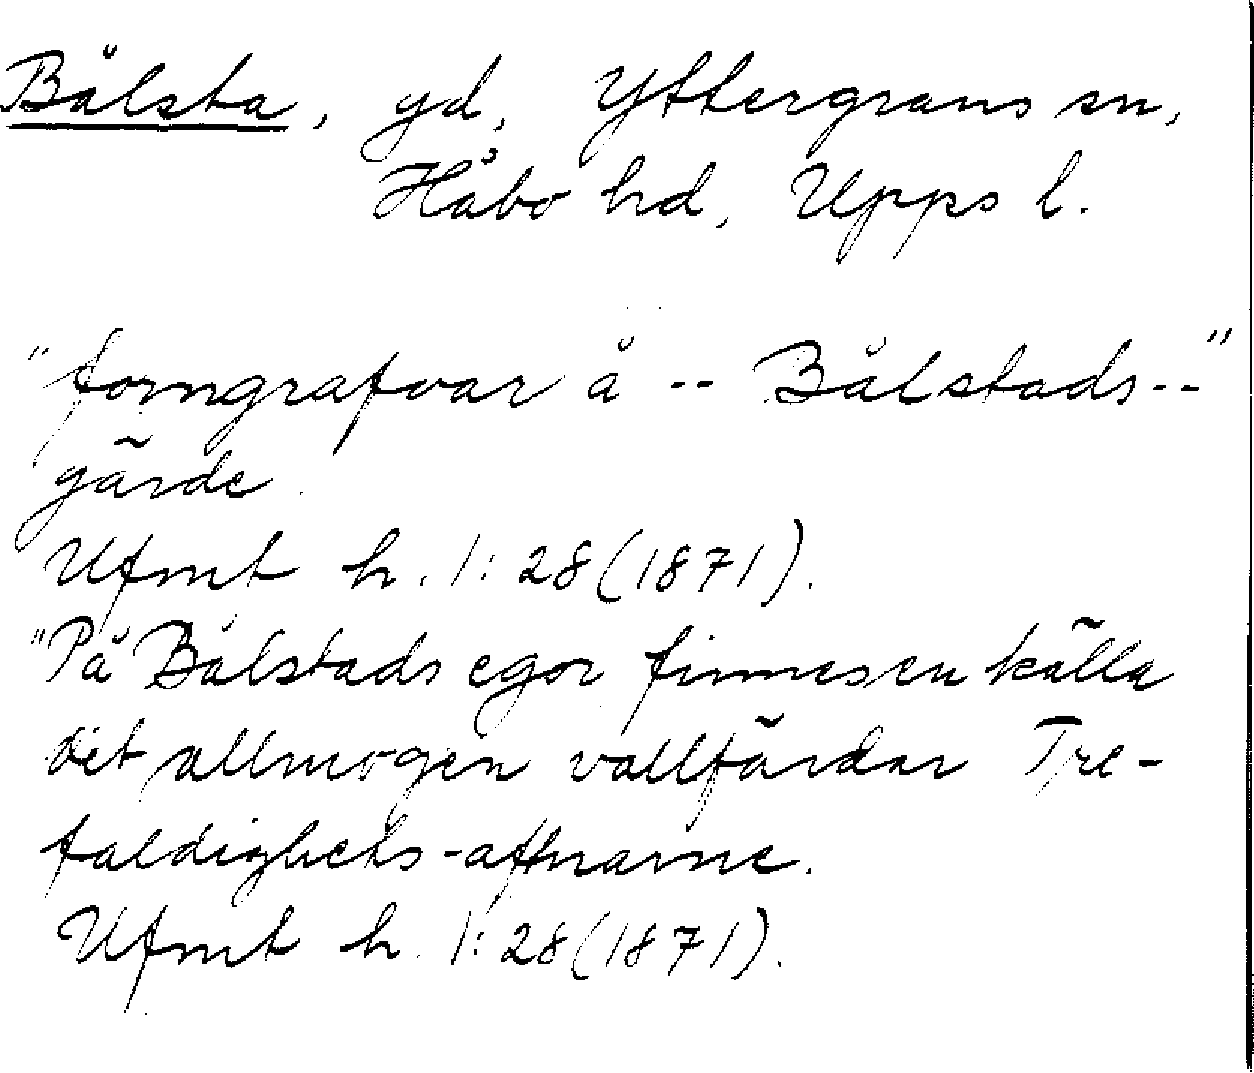 Bålsta, yd, Yttergrans sn,
Håbo hd, Upps l.
"forngrafvar å -- Bålstads--"
gärde.
Ufmt h. 1:28(1871).
"På Bålstads egor finnes en källa
dit allmogen vallfärdar Tre-
faldighets-aftnarne.
Ufmt h. 1:28(1871).